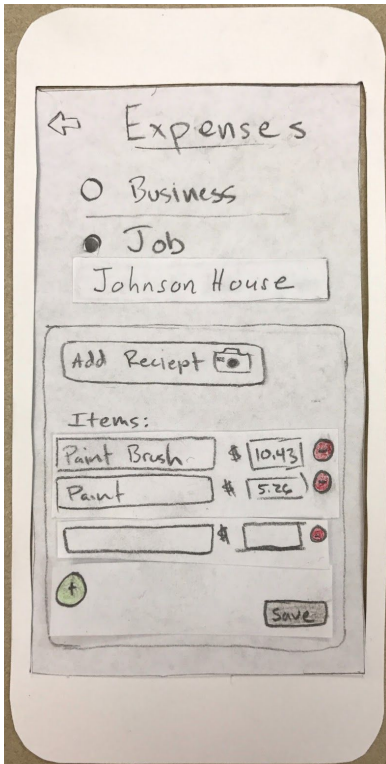 Expenses
Business
Job
Johnson House
Add Reciept
Items:
Paint Brush $ 10.43
Paint $ 5.26
$
+
Save